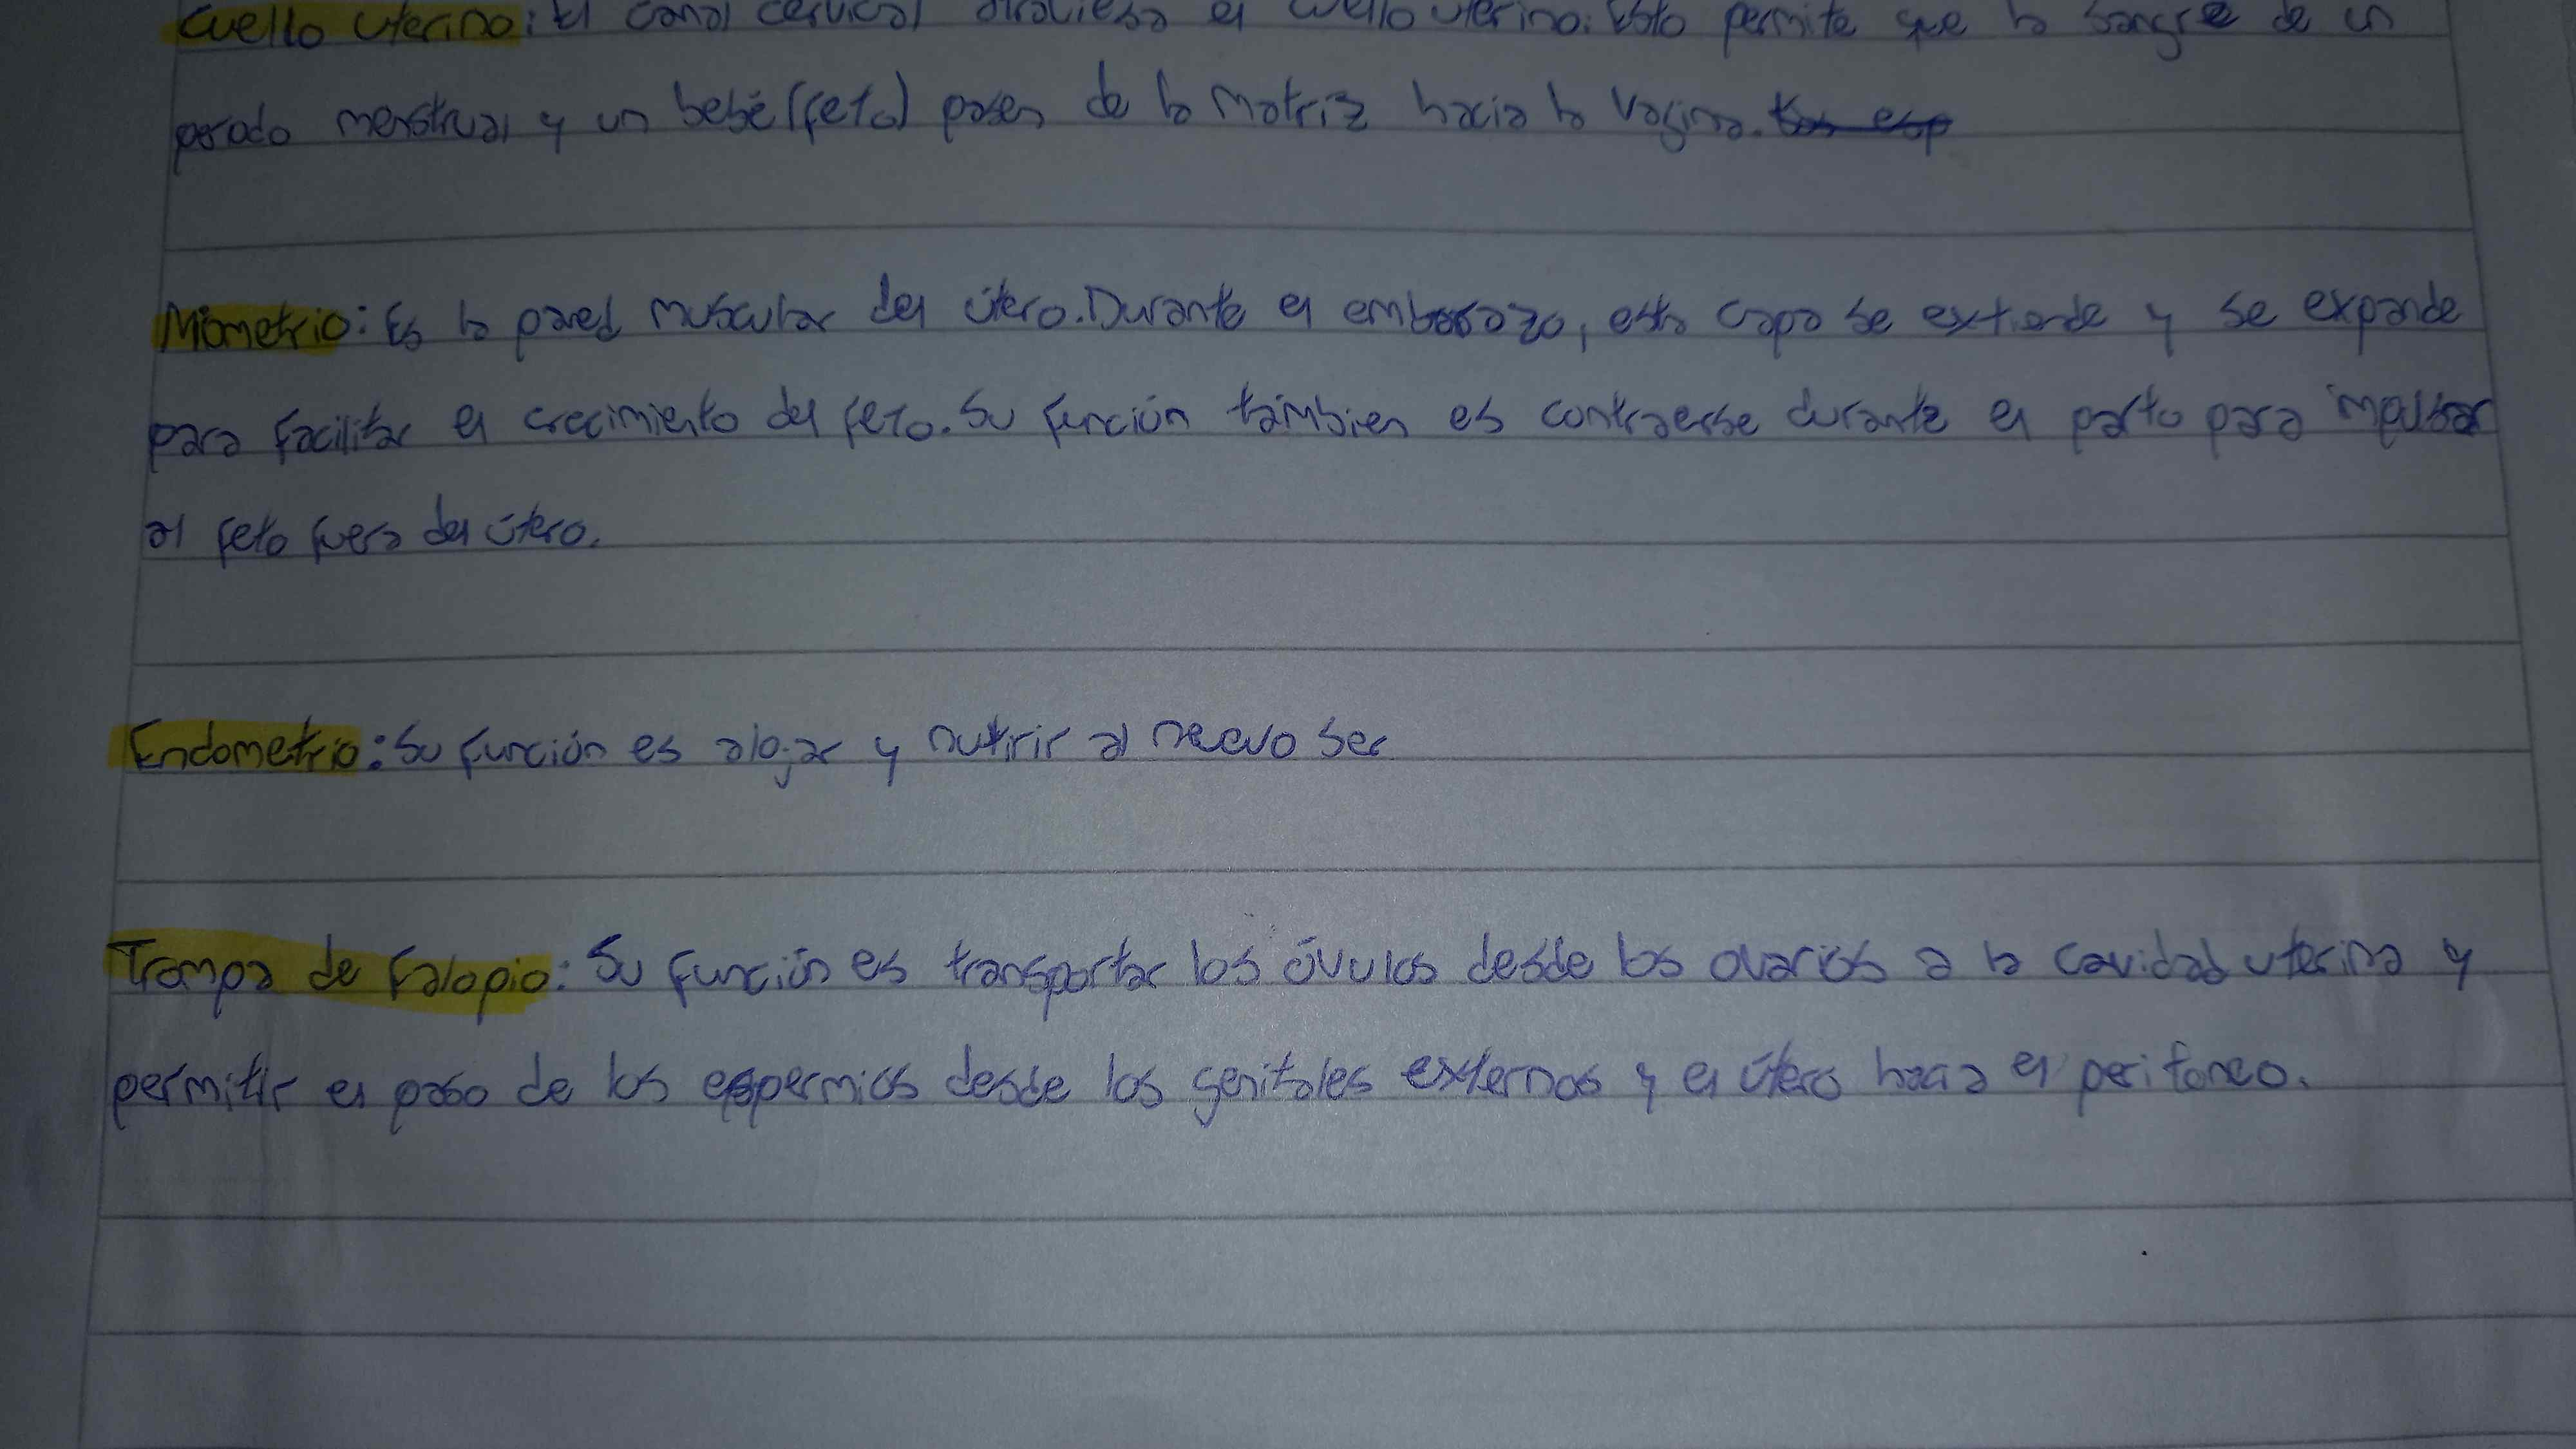 Cuello Uterino: El canal cervical atraviesa el cuello uterino. Esto permite que la sangre de un
perodo menstrual y un bebé (feto) pasen de la matriz hacia la vagina.
Miometrio: Es la pared muscular del útero. Durante el embarazo, esta capa se extiende y se expande
para facilitar el crecimiento del feto. Su función támbien es contraerse durante el parto para impulsar
al feto fuera del útero.
Endometrio: Su función es alojar y nutrir al nuevo ser
Trompa de Falopio: Su función es transportar los óvulos desde los ovarios a la cavidad uterina y
permitir el paso de los espermios desde los genitales externos y el útero hacia el peritoneo.